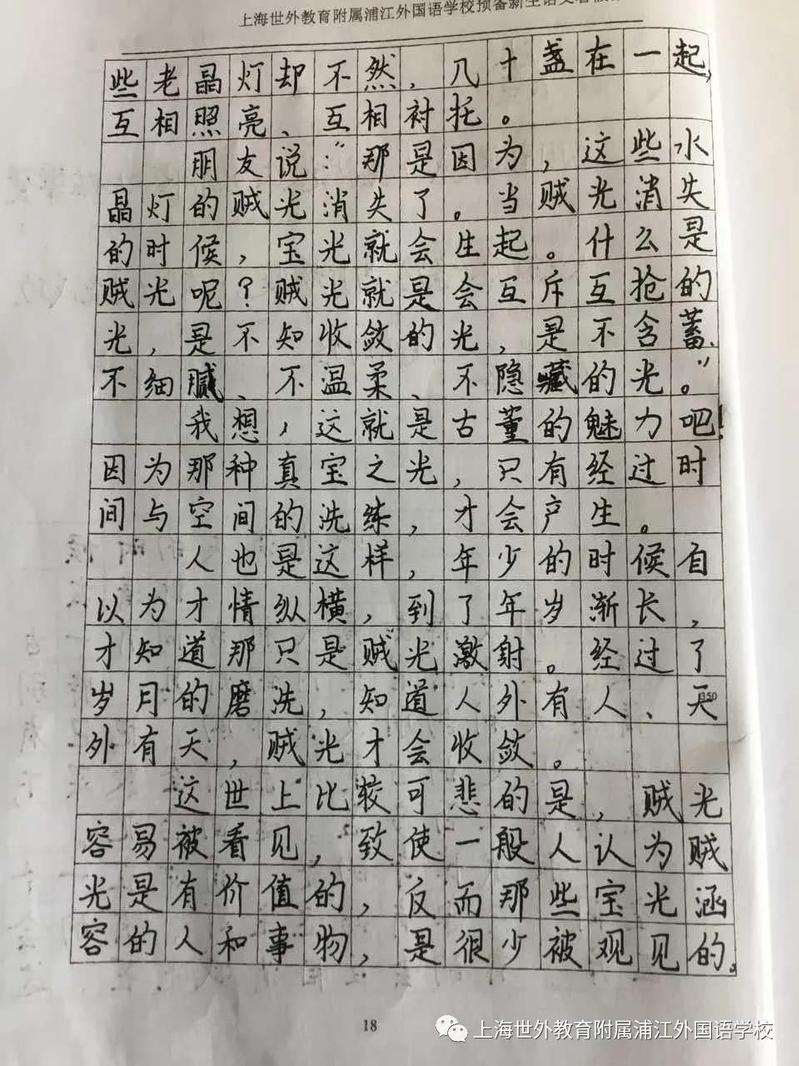 上海世外教育附属浦江外国语学校预备新生语文暑假
些老晶灯却不然,几十盏在一起,
互相照亮、互相衬托。
朋友说:"那是因为,这些水
晶灯的贼光消失了。当贼光消失
的时候,宝光就会生起。什么是
贼光呢?贼光就是会互斥互抢的
光,是不知收敛的光,是不含蓄、
不细腻、不温柔、不隐藏的光。"
我想,这就是古董的魅力吧!
因为那种真宝之光,只有经过时
间与空间的洗练,才会产生。
人也是这样,年少的时候自
以为才情纵横,到了年岁渐长,
才知道那只是贼光激射。经过了
岁月的磨洗,知道人外有人、天
350
外有天,贼光才会收敛。
这世上比较可悲的是,贼光
容易被看见,致使一般人认为贼
光是有价值的,反而那些宝光涵
容的人和事物,是很少被观见的。
18
上海世外教育附属浦江外国语学校